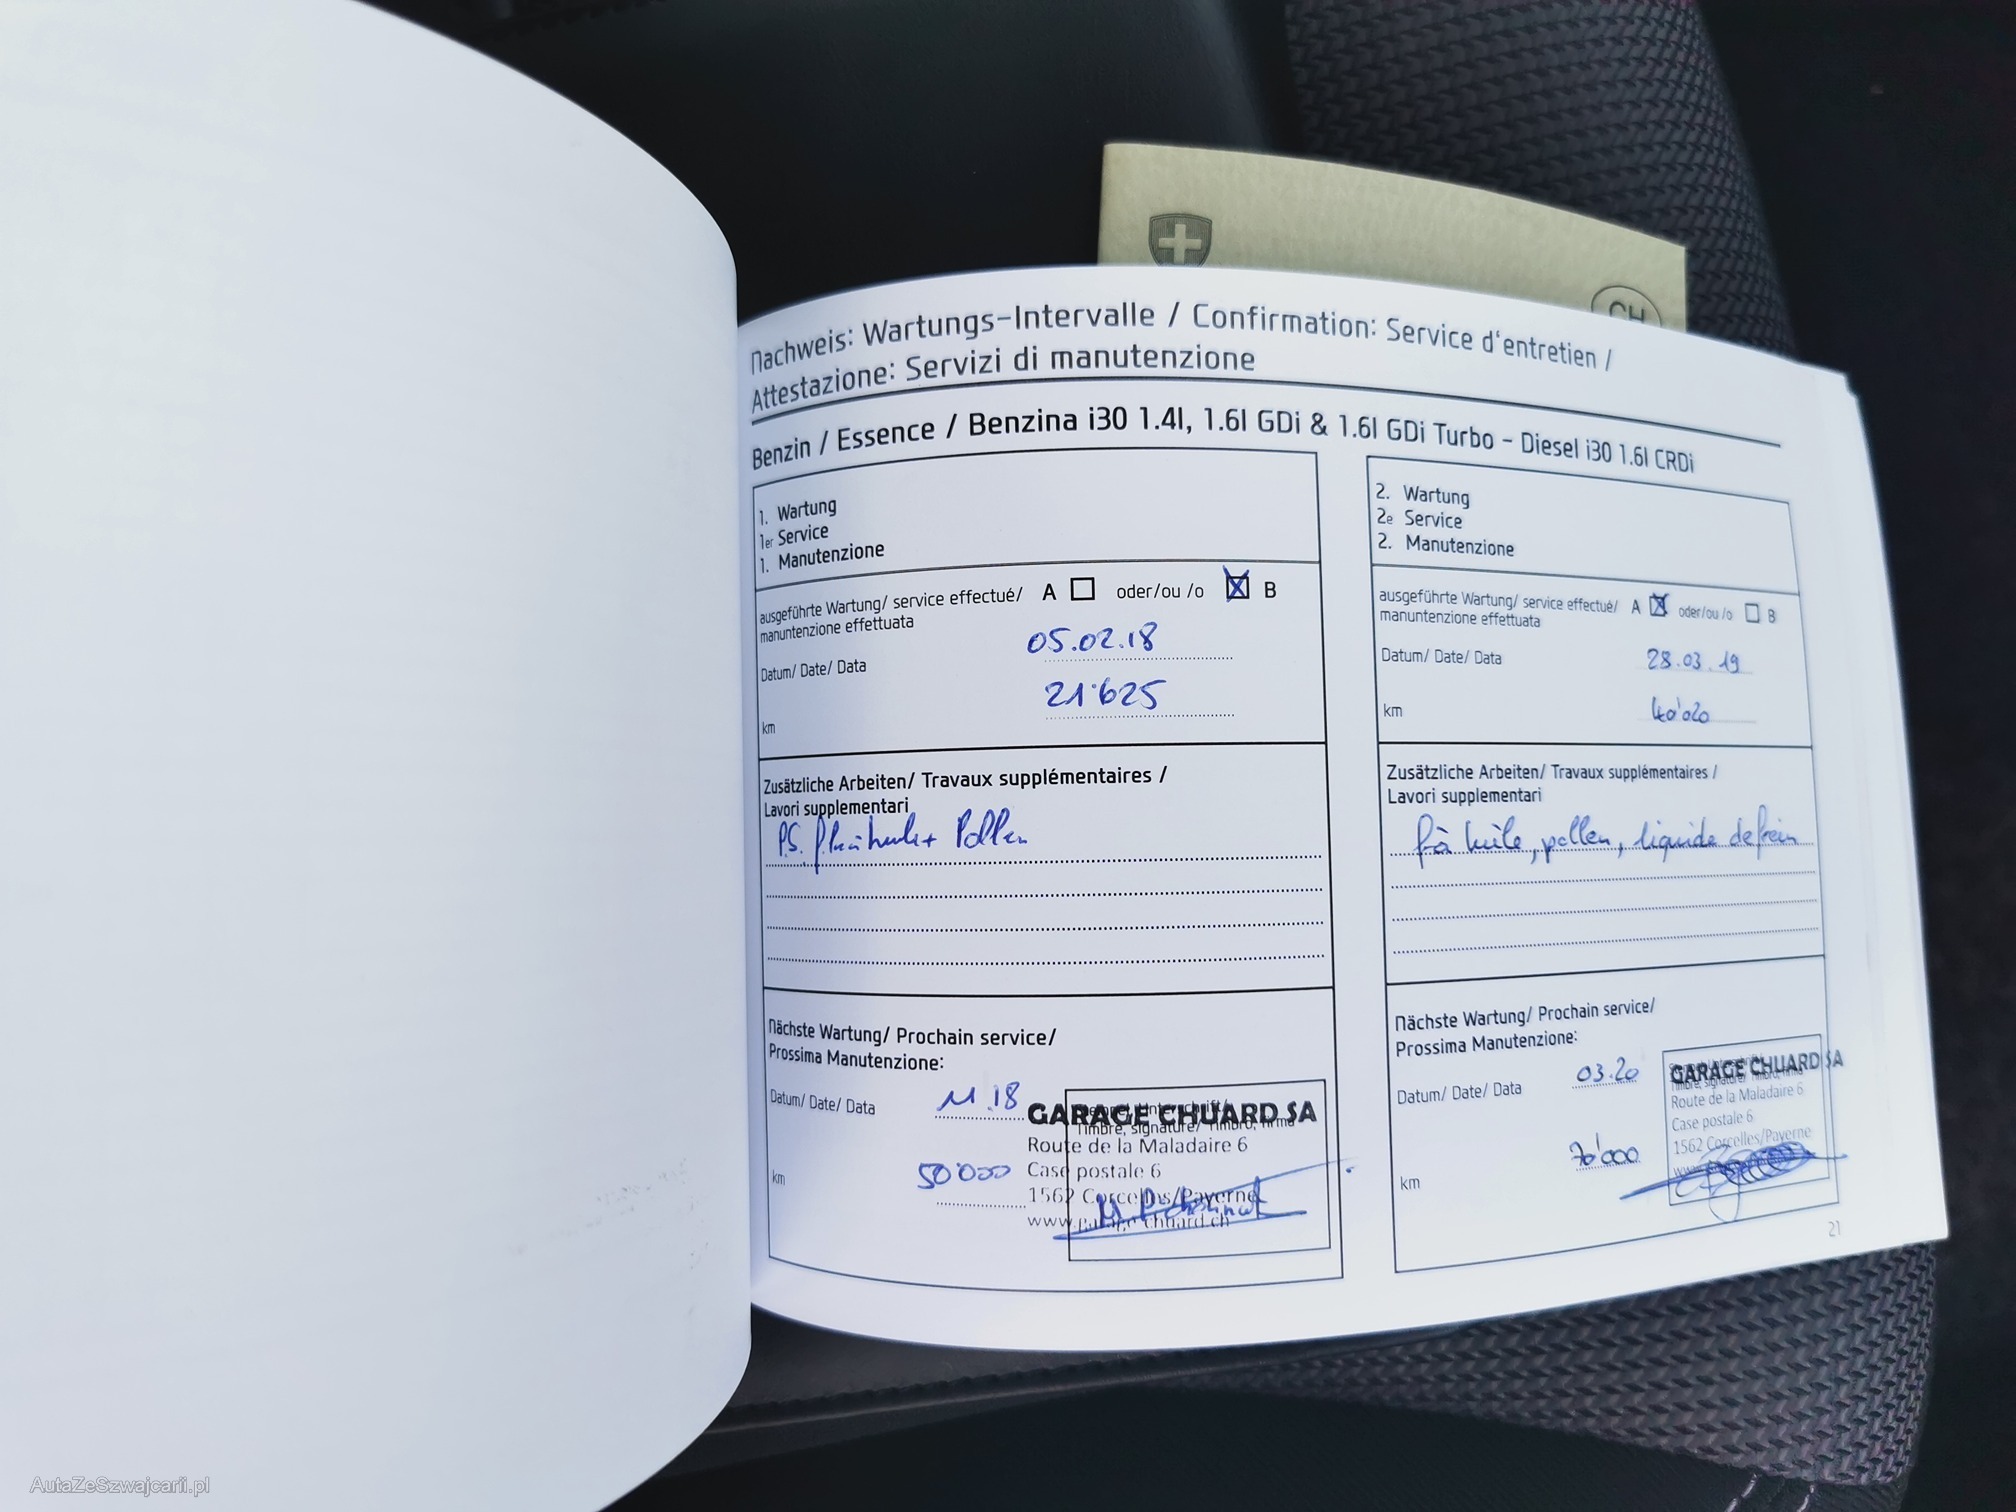 CH
Nachweis: Wartungs-Intervalle / Confirmation: Service d'entretien /
Attestazione: Servizi di manutenzione
Benzin / Essence / Benzina i30 1.4l, 1.6l GDi & 1.6l GDi Turbo - Diesel i30 1.6l CRDi
1. Wartung
1er Service
1. Manutenzione
ausgeführte Wartung/ service effectué/ A oder/ou /o B
manuntenzione effettuata
Datum/ Date/ Data 05.02.18
km 21'625
Zusätzliche Arbeiten/ Travaux supplémentaires /
Lavori supplementari
P.S. Pollen
Nächste Wartung/ Prochain service/
Prossima Manutenzione:
Datum/ Date/ Data 11.18
km 50'000
GARAGE CHUARD SA
Timbre, signature/ Timbro, firma
Route de la Maladaire 6
Case postale 6
1562 Corcelles/Payerne
www.garage-chuard.ch
2. Wartung
2e Service
2. Manutenzione
ausgeführte Wartung/ service effectué/ A oder/ou /o B
manuntenzione effettuata
Datum/ Date/ Data 28.03.19
km 40'020
Zusätzliche Arbeiten/ Travaux supplémentaires /
Lavori supplementari
huile, pollen, liquide de frein
Nächste Wartung/ Prochain service/
Prossima Manutenzione:
Datum/ Date/ Data 03.20
km 70'000
GARAGE CHUARD SA
Route de la Maladaire 6
Case postale 6
1562 Corcelles/Payerne
21
AutaZeSzwajcarii.pl